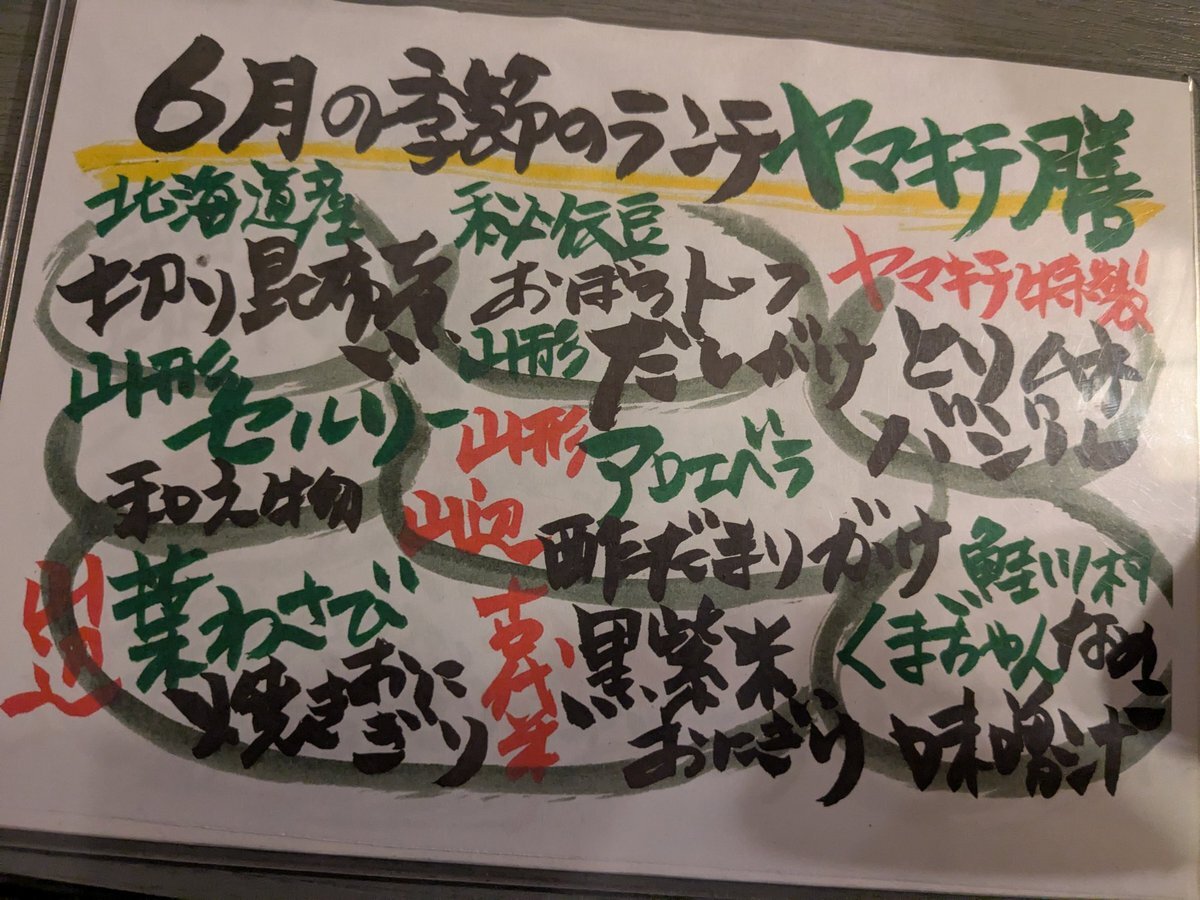 6月の季節のランチヤマキチ膳
北海道産
切り昆布煮
秘伝豆
おぼろトーフ
山形
だしがけ
ヤマキチ特製
とりハム
バジリル
山形
セルリー
和え物
山形
山辺
アロエベラ
酢だまりがけ
葉わさび
焼きおにぎり
古代米
黒紫米
おにぎり
鮭川村
くまぢゃんなめこ
味噌汁